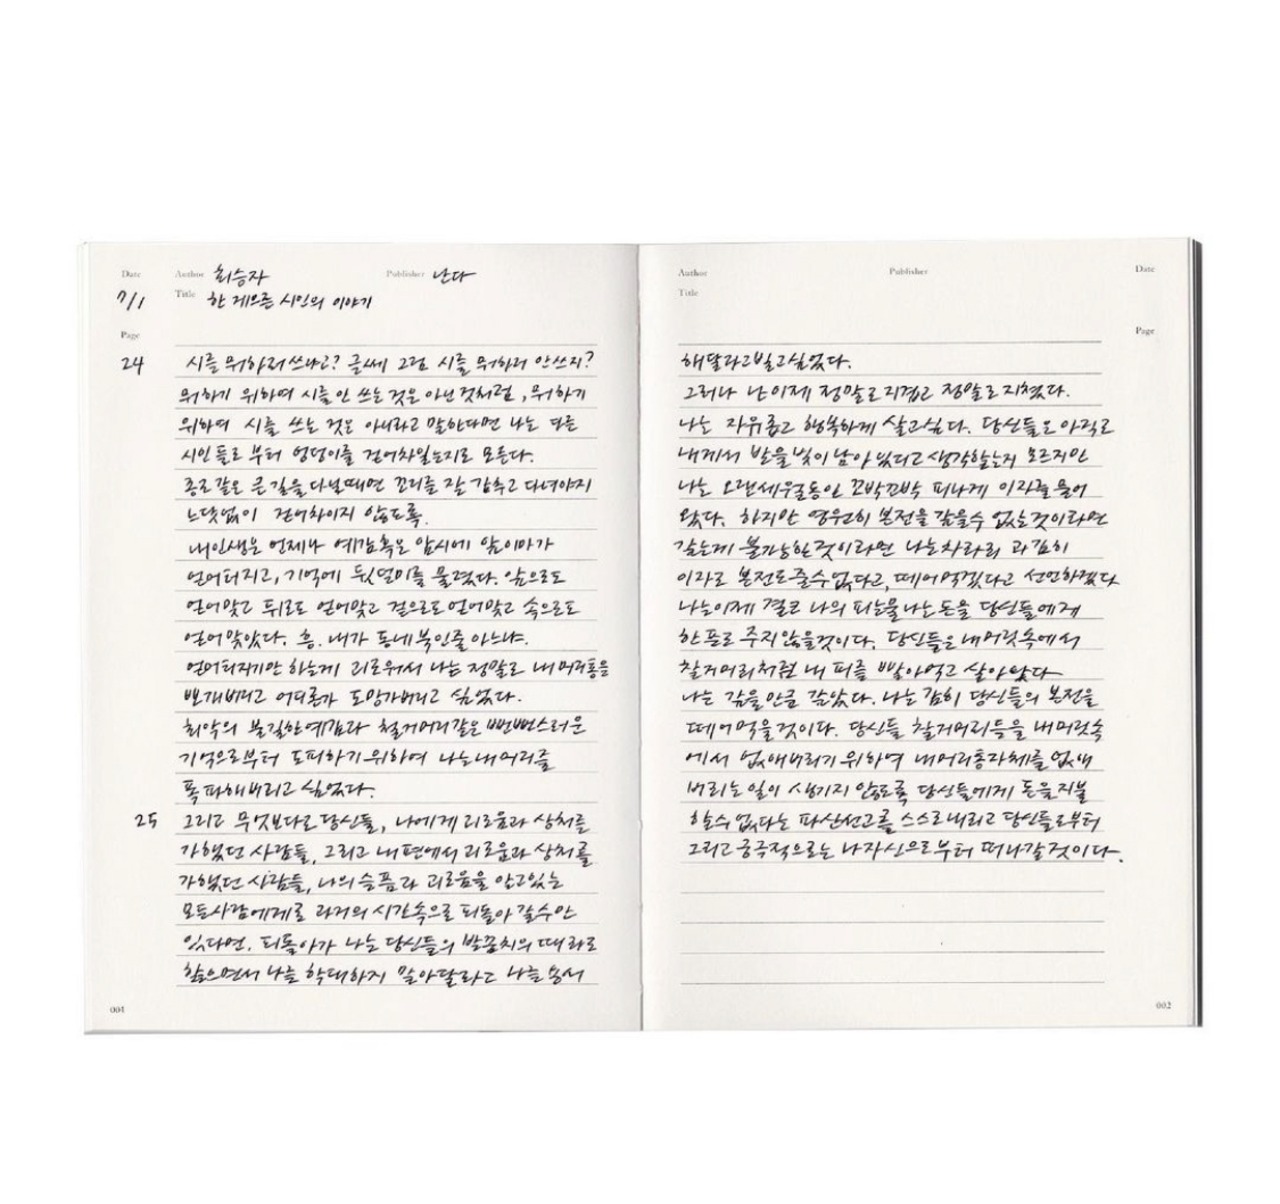 Date Author 최승자 Publisher 난다
7/1 Title 한 게으른 시인의 이야기
Page
24 시를 뭐하러 쓰냐고? 글쎄 그럼 시를 뭐하러 안 쓰지?
뭐하기 위하여 시를 안 쓰는 것은 아닌 것처럼, 뭐하기
위하여 시를 쓰는 것은 아니라고 말한다면 나는 다른
시인들로부터 엉덩이를 걷어차일는지도 모른다.
종로 같은 큰 길을 다닐 때면 꼬리를 잘 감추고 다녀야지
느닷없이 걷어차이지 않도록.
내 인생은 언제나 예감 혹은 암시에 앞이마가
얻어터지고, 기억에 뒷덜미를 물렸다. 앞으로도
얻어맞고 뒤로도 얻어맞고 겉으로도 얻어맞고 속으로도
얻어맞았다. 흥. 내가 동네북인 줄 아느냐.
얻어터지기만 하는 게 괴로워서 나는 정말로 내 머리통을
뽀개버리고 어디론가 도망가버리고 싶었다.
최악의 불길한 예감과 철거머리 같은 뻔뻔스러운
기억으로부터 도피하기 위하여 나는 내 머리를
폭파해버리고 싶었다.
25 그리고 무엇보다도 당신들, 나에게 괴로움과 상처를
가했던 사람들, 그리고 내 편에서 괴로움과 상처를
가했던 사람들, 나의 슬픔과 괴로움을 안고 있는
모든 사람에게로 과거의 시간 속으로 되돌아갈 수만
있다면. 되돌아가 나는 당신들의 발꿈치의 때라도
핥으면서 나를 학대하지 말아달라고 나를 용서
001
Author Publisher Date
Title
Page
해달라고 빌고 싶었다.
그러나 난 이제 정말로 지겹고 정말로 지쳤다.
나는 자유롭고 행복하게 살고 싶다. 당신들은 아직도
내게서 받을 빚이 남아 있다고 생각할는지 모르지만
나는 오랜 세월 동안 꼬박꼬박 피나게 이자를 물어
왔다. 하지만 영원히 본전을 갚을 수 없는 것이라면
갚는 게 불가능한 것이라면 나는 차라리 과감히
이자도 본전도 줄 수 없다고, 떼어먹겠다고 선언하겠다
나는 이제 결코 나의 피눈물 나는 돈을 당신들에게
한 푼도 주지 않을 것이다. 당신들은 내 머릿속에서
찰거머리처럼 내 피를 빨아먹고 살아왔다
나는 갚을 만큼 갚았다. 나는 감히 당신들의 본전을
떼어먹을 것이다. 당신들 찰거머리들을 내 머릿속
에서 없애버리기 위하여 내 머리통 자체를 없애
버리는 일이 생기지 않도록 당신들에게 돈을 지불
할 수 없다는 파산선고를 스스로 내리고 당신들로부터
그리고 궁극적으로는 나 자신으로부터 떠나갈 것이다.
002